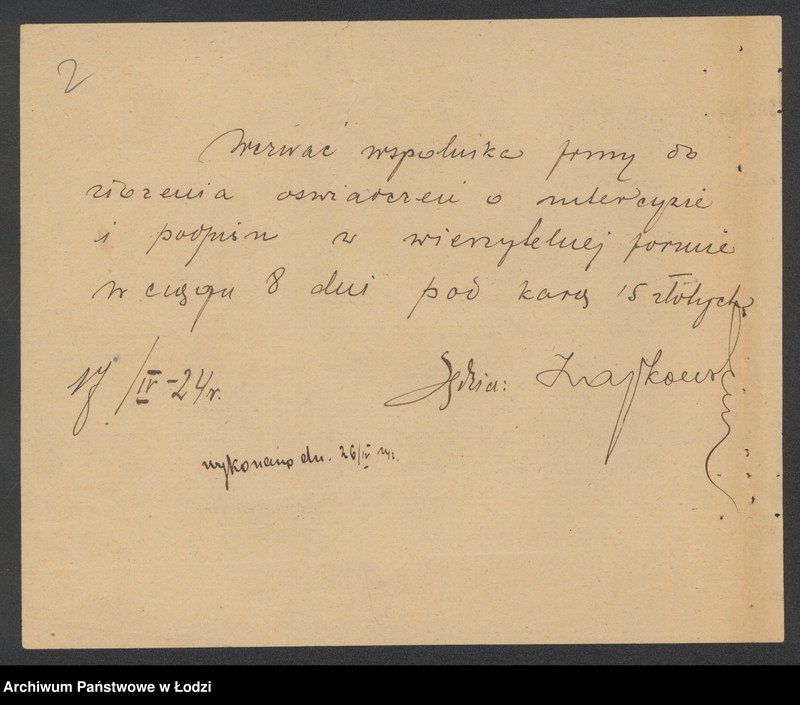 2
Wezwać wspolnika firmy do
złożenia oswiadczeń o intercyzie
i podpisu w wierzytelnej formie
w ciągu 8 dni pod karą 15 złotych
17/IV-24 r.
Sędzia:
wykonano dn. 26/IV 24 r.
Archiwum Państwowe w Łodzi